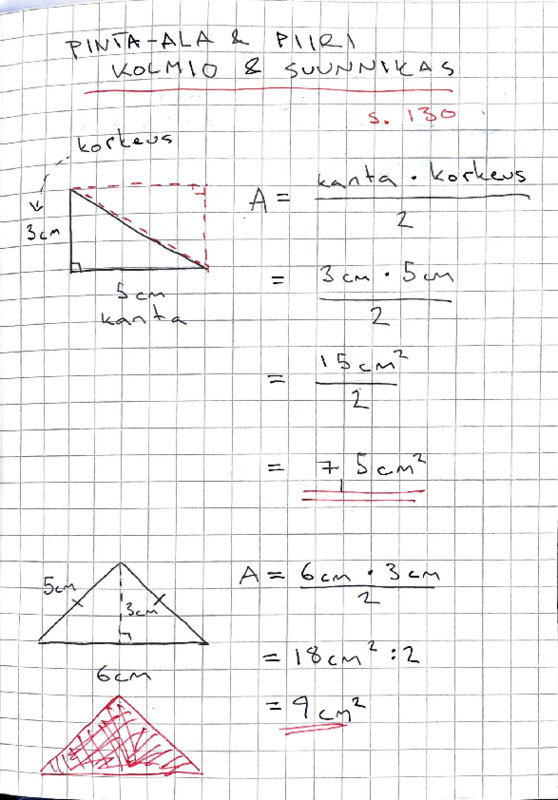 PINTA-ALA & PIIRI
KOLMIO & SUUNNIKAS
s. 130
korkeus
3cm
5cm
kanta
A = kanta · korkeus
2
= 3cm · 5cm
2
= 15cm²
2
= 7,5cm²
5cm
3cm
6cm
A = 6cm · 3cm
2
= 18cm² : 2
= 9cm²